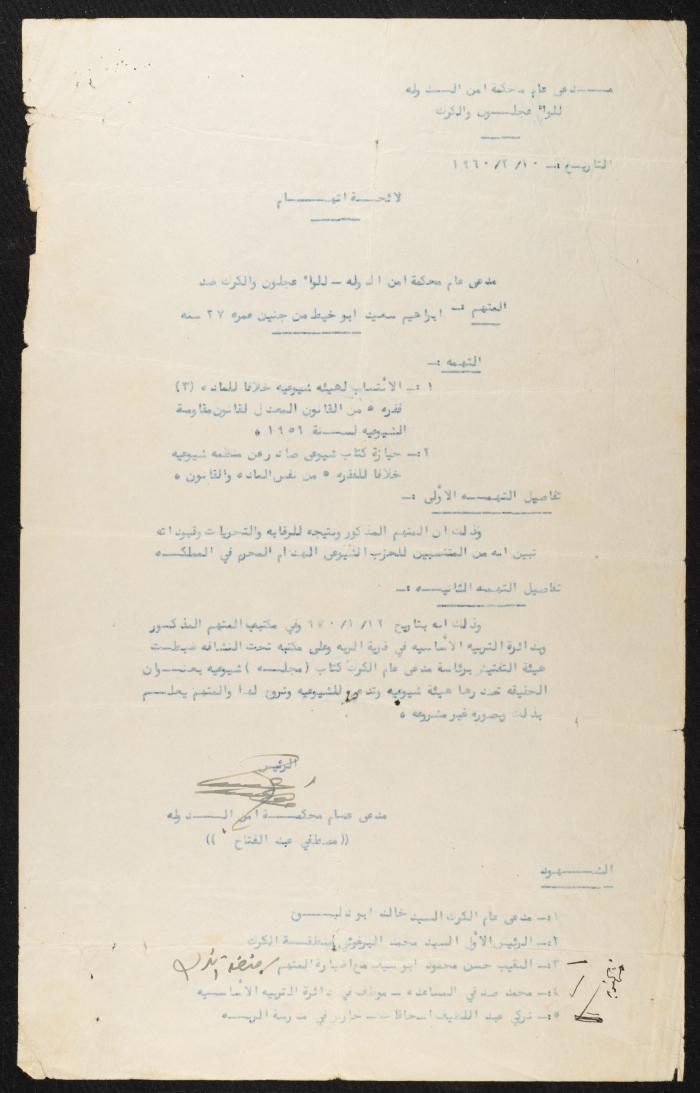 مدعى عام محكمة امن الدوله
للوا٠ عجلون والكرك
التاريخ :ـ ١٠ /٢/ ١٩٦٠
لائحة اتهام
مدعى عام محكمة امن الدوله ــ للوا٠ عجلون والكرك ضد
المتهم :ـ ابراهيم سعيد ابو خيط من جنين عمره ٢٧ سنه
التهمه :ـ
١ :ـ الانتساب لهيئه شيوعيه خلافا للماده (٣)
فقره ٥ من القانون المعدل لقانون مقاومة
الشيوعيه لسنة ١٩٥٦ ٠
٢ :ـ حيازة كتاب شيوعى صادر عن منظمه شيوعيه
خلافا للفقره ٥ من نفس الماده والقانون ٠
تفاصيل التهمه الأولى :ـ
وذلك ان المتهم المذكور ونتيجه للرقابه والتحريات وقيوداته
تبين انه من المنتسبين للحزب الشيوعى الهدام المحرم في المملكه
تفاصيل التهمه الثانيه :ـ
وذلك انه بتاريخ ١٢ /١/ ٦٠ وفي مكتب المتهم المذكور
وبدائرة التربيه الأساسيه في قرية الربه وعلى مكتبه تحت النشافه ضبطت
هيئة التفتيش برئاسة مدعى عام الكرك كتاب (مجله) شيوعيه بعنوان
الحقيقه تصدرها هيئة شيوعيه وتدعو للشيوعيه وتروج لها والمتهم يعلم
بذلك وبصوره غير مشروعه ٠
الرئيس
مدعى عام محكمة امن الدوله
((مصطفي عبد الفتاح))
الشهود
١ :ـ مدعى عام الكرك السيد خالد ابو دلبوح
٢ :ـ الرئيس الأول السيد محمد البرغوثي بمنطقة الكرك
٣ :ـ النقيب حسن محمود ابو سيد مع اضبارة المتهم / منطقة الكرك
٤ :ـ محمد صدقي المساعده ــ موظف في دائرة التربيه الأساسيه
٥ :ـ تركي عبد اللطيف اسحاقات ــ حارس في مدرسة الربه